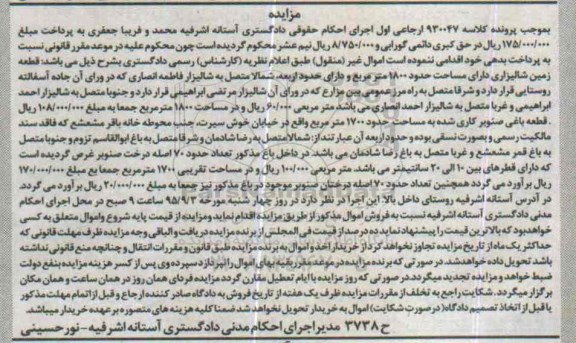 مزایده
بموجب پرونده کلاسه ۹۳۰۰۴۷ ارجاعی اول اجرای احکام حقوقی دادگستری آستانه اشرفیه محمد و فریبا جعفری به پرداخت مبلغ
۱۷۵/۰۰۰/۰۰۰ ریال در حق کبری دائمی گورابی و ۸/۷۵۰/۰۰۰ ریال نیم عشر محکوم گردیده است چون محکوم علیه در موعد مقرر قانونی نسبت
به پرداخت بدهی خود اقدامی ننموده است اموال غیر (منقول) طبق اعلام نظریه (کارشناس) رسمی دادگستری بشرح ذیل می باشد: قطعه
زمین شالیزاری دارای مساحت حدود ۱۸۰۰ متر مربع و دارای حدود اربعه، شمالا متصل به شالیزار فاطمه انصاری که در ورای آن جاده آسفالته
روستایی قرار دارد و شرقا متصل به راه مرز عمومی بین مزارع که در ورای آن شالیزار مرتضی ابراهیمی قرار دارد و جنوبا متصل به شالیزار احمد
ابراهیمی و غربا متصل به شالیزار احمد انصاری می باشد. متر مربعی ۶۰/۰۰۰ ریال و در مساحت ۱۸۰۰ متر مربع جمعا به مبلغ ۱۰۸/۰۰۰/۰۰۰ ریال
. قطعه باغی صنوبر کاری شده به مساحت حدود ۱۷۰۰ متر مربع واقع در خیابان خوش سیرت، جنب محوطه خانه باقر مشعشع که فاقد سند
مالکیت رسمی و بصورت نسقی بوده و حدود اربعه آن عبارتند از: شمالا متصل به رضا شادمان و شرقا متصل به باغ ابوالقاسم تزوم و جنوبا متصل
به باغ قمر مشعشع و غربا متصل به باغ رضا شادمان می باشد. در داخل باغ مذکور تعداد حدود ۷۰ اصله درخت صنوبر غرس گردیده است
که دارای قطرهای بین ۱۰ الی ۲۰ سانتیمتر می باشد. متر مربعی ۱۰۰/۰۰۰ ریال و در مساحت تقریبی ۱۷۰۰ متر مربع جمعا به مبلغ ۱۷۰/۰۰۰/۰۰۰
ریال برآورد می گردد همچنین تعداد حدود ۷۰ اصله درختان صنوبر موجود در باغ مذکور نیز جمعا به مبلغ ۲۰/۰۰۰/۰۰۰ ریال برآورد می گردد.
در آدرس آستانه اشرفیه روستای داخل بالا. این اجرا در نظر دارد در روز چهار شنبه مورخه ۹۵/۹/۳ ساعت ۹ صبح در محل اجرای احکام
مدنی دادگستری آستانه اشرفیه نسبت به فروش اموال مذکور از طریق مزایده اقدام نماید و مزایده از قیمت پایه شروع و اموال متعلق به کسی
خواهد بود که بالاترین قیمت را پیشنهاد نماید ده درصد از قیمت فی المجلس از برنده مزایده دریافت و الباقی وجه مزایده ظرف مهلت قانونی که
حداکثر یک ماه از تاریخ مزایده تجاوز نخواهد کرد از خریدار اخذ و اموال به برنده مزایده طبق قانون و مقررات انتقال و چنانچه منع قانونی نداشته
باشد تحویل داده خواهد شد. در صورتی که برنده مزایده در موعد مقرر بقیه بهای اموال را نپردازد سپرده وی پس از کسر هزینه مزایده بنفع دولت
ضبط خواهد و مزایده تجدید میگردد. در صورتی که روز مزایده با ایام تعطیل مقارن گردد مزایده فردای همان روز در همان ساعت و همان مکان
برگزار میگردد. شکایت راجع به تخلف از مقررات مزایده ظرف یک هفته از تاریخ فروش به دادگاه صادر کننده ارجاع و قبل از اتمام مهلت مذکور
یا قبل از اتخاذ تصمیم دادگاه (در صورت شکایت) اموال به خریدار تحویل نخواهد شد ضمنا کلیه هزینه های متصوره بر عهده خریدار میباشد.
ح ۳۷۳۸ مدیر اجرای احکام مدنی دادگستری آستانه اشرفیه - نورحسینی